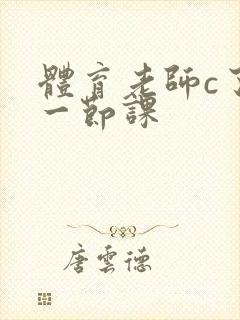 體育老師c了
一節課
唐雲德